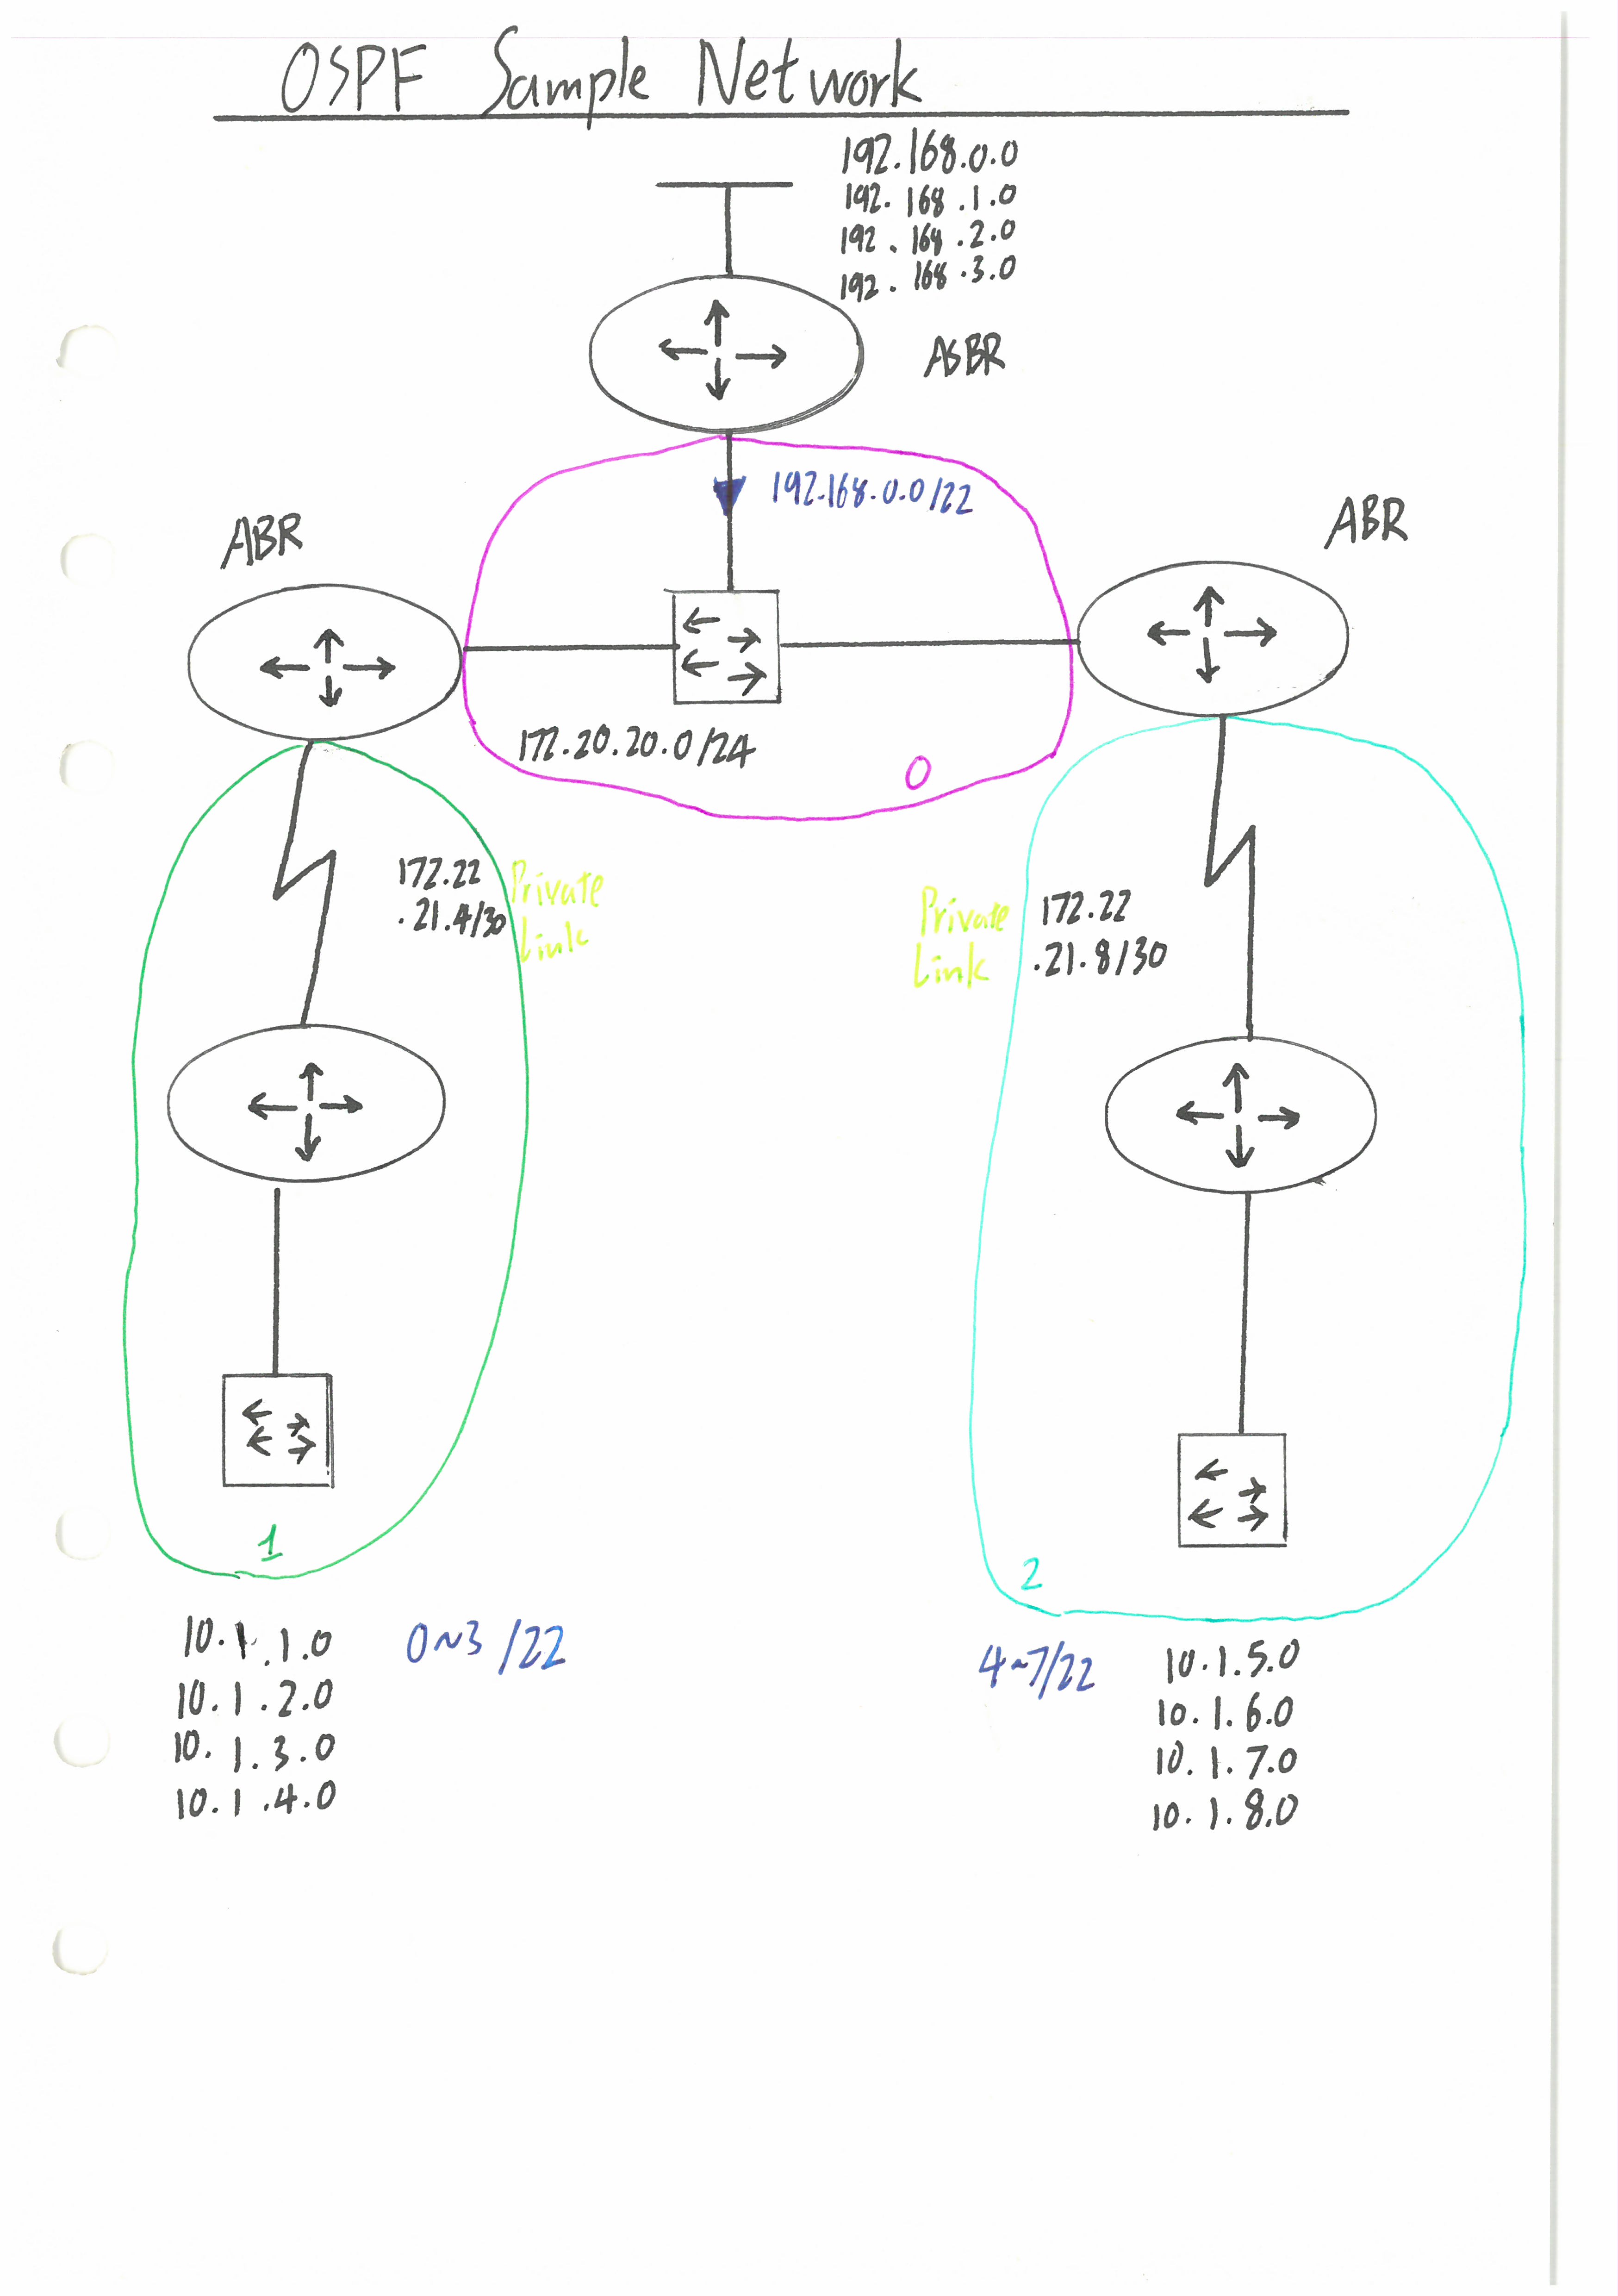 OSPF Sample Network
192.168.0.0
192.168.1.0
192.168.2.0
192.168.3.0
ASBR
192.168.0.0/22
ABR
ABR
172.20.20.0/24
0
172.22
.21.4/30
Private
Link
Private
Link
172.22
.21.8/30
1
2
10.1.1.0
10.1.2.0
10.1.3.0
10.1.4.0
0~3/22
4~7/22
10.1.5.0
10.1.6.0
10.1.7.0
10.1.8.0